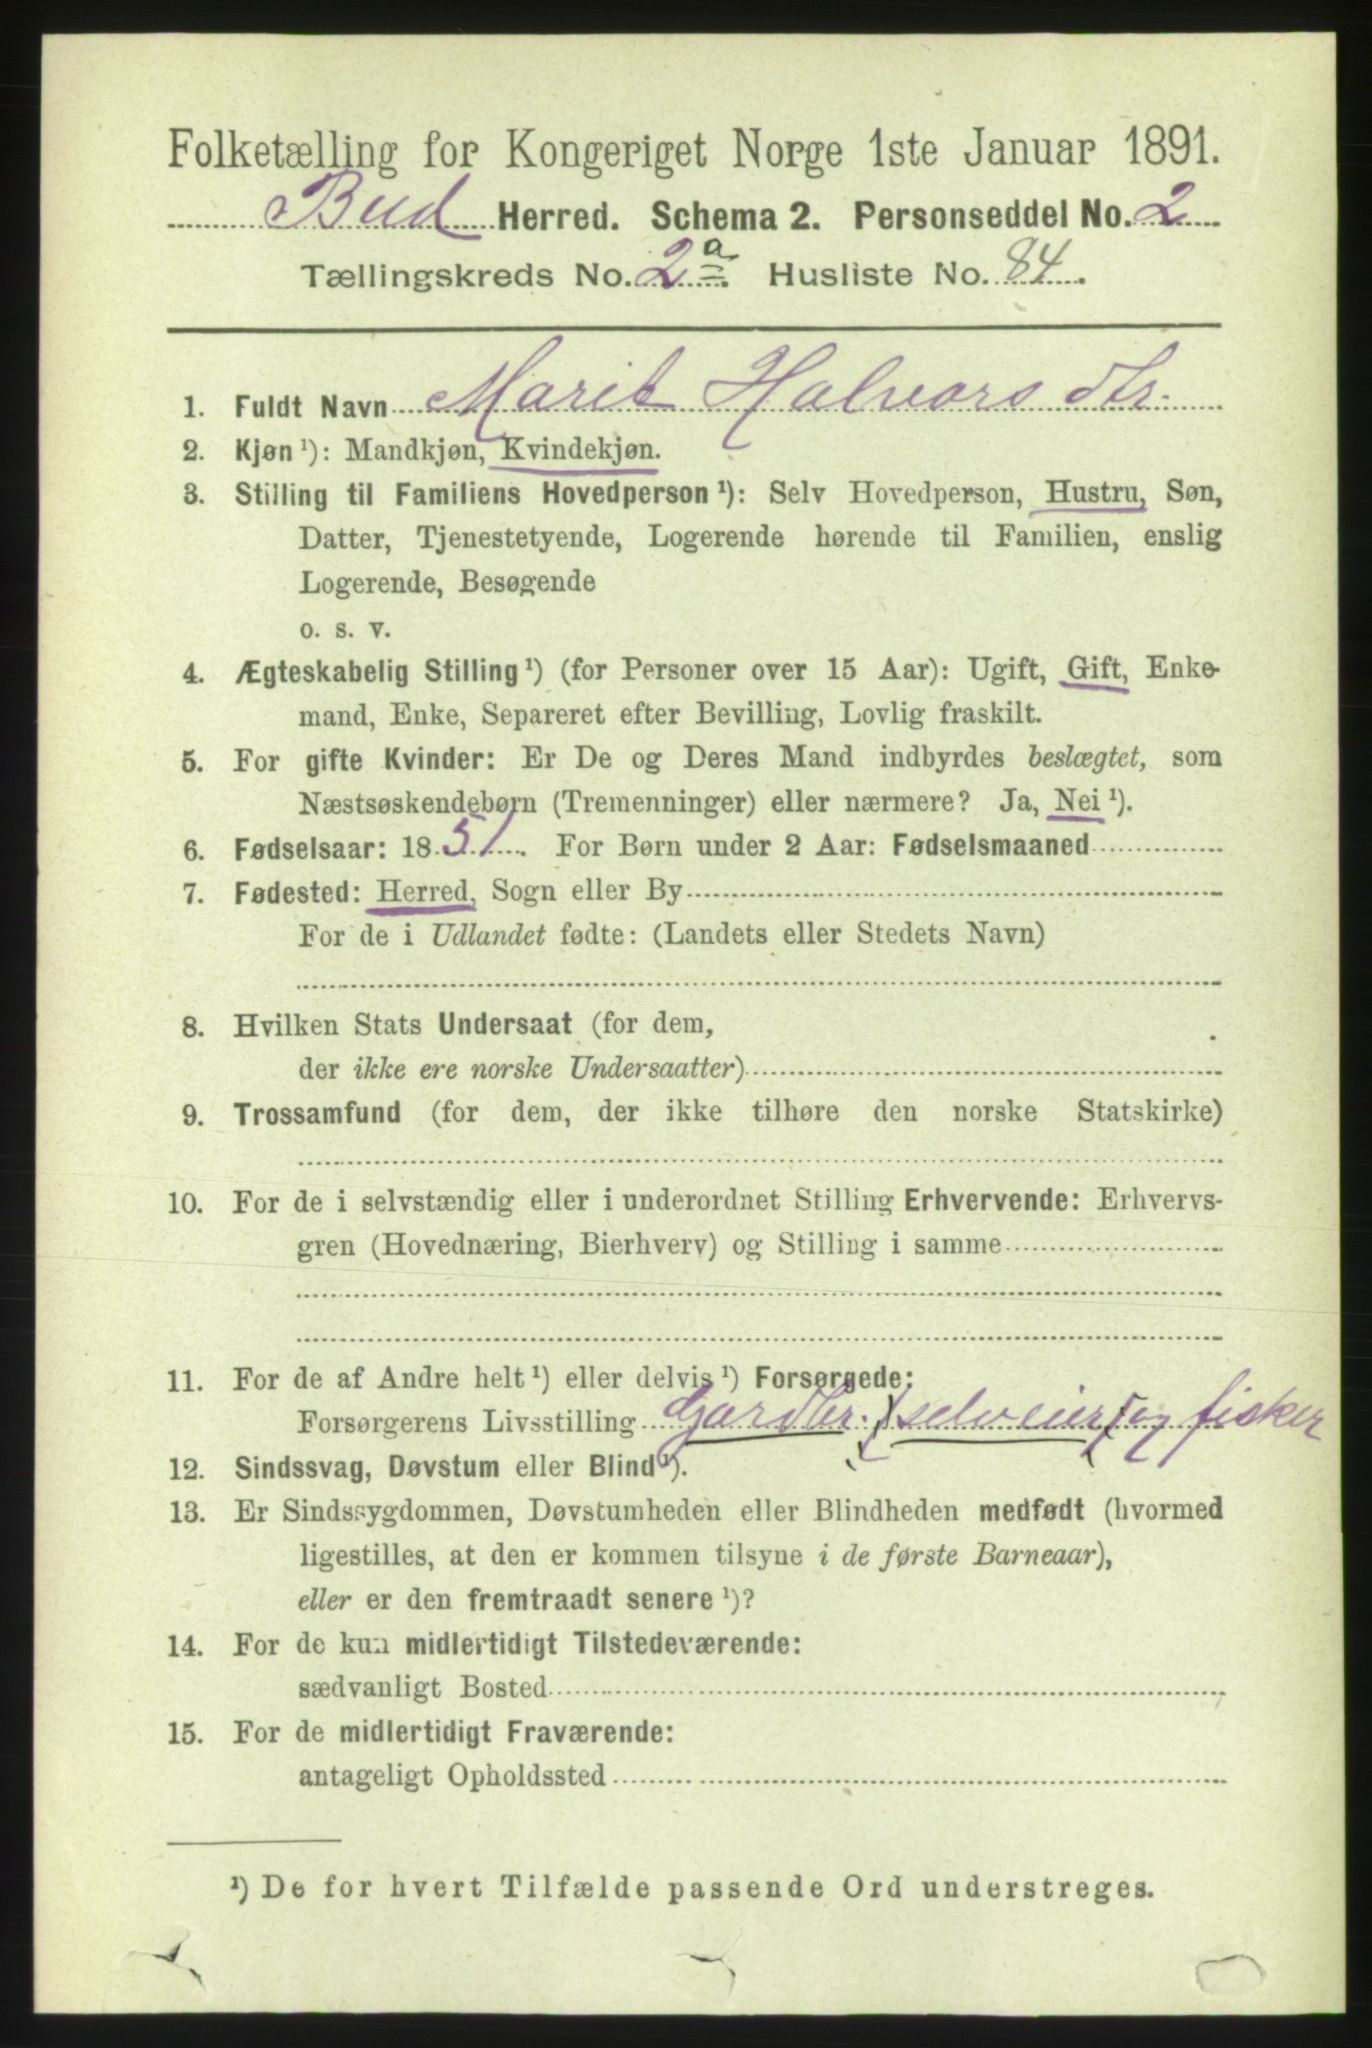 Folketælling for Kongeriget Norge 1ste Januar 1891.
Bud Herred. Schema 2. Personseddel No. 2
Tællingskreds No. 2a. Husliste No. 84.
1. Fuldt Navn Marit Halvorsdtr.
2. Kjøn ¹): Mandkjøn, Kvindekjøn.
3. Stilling til Familiens Hovedperson ¹): Selv Hovedperson, Hustru, Søn,
Datter, Tjenestetyende, Logerende hørende til Familien, enslig
Logerende, Besøgende
o. s. v.
4. Ægteskabelig Stilling ¹) (for Personer over 15 Aar): Ugift, Gift, Enke-
mand, Enke, Separeret efter Bevilling, Lovlig fraskilt.
5. For gifte Kvinder: Er De og Deres Mand indbyrdes beslægtet, som
Næstsøskendebørn (Tremenninger) eller nærmere? Ja, Nei ¹).
6. Fødselsaar: 1851. For Børn under 2 Aar: Fødselsmaaned
7. Fødested: Herred, Sogn eller By
For de i Udlandet fødte: (Landets eller Stedets Navn)
8. Hvilken Stats Undersaat (for dem,
der ikke ere norske Undersaatter)
9. Trossamfund (for dem, der ikke tilhøre den norske Statskirke)
10. For de i selvstændig eller i underordnet Stilling Erhvervende: Erhvervs-
gren (Hovednæring, Bierhverv) og Stilling i samme
11. For de af Andre helt ¹) eller delvis ¹) Forsørgede:
Forsørgerens Livsstilling Gardbr. (selveier) og fisker
12. Sindssvag, Døvstum eller Blind ¹).
13. Er Sindssygdommen, Døvstumheden eller Blindheden medfødt (hvormed
ligestilles, at den er kommen tilsyne i de første Barneaar),
eller er den fremtraadt senere ¹)?
14. For de kun midlertidigt Tilstedeværende:
sædvanligt Bosted
15. For de midlertidigt Fraværende:
antageligt Opholdssted
¹) De for hvert Tilfælde passende Ord understreges.